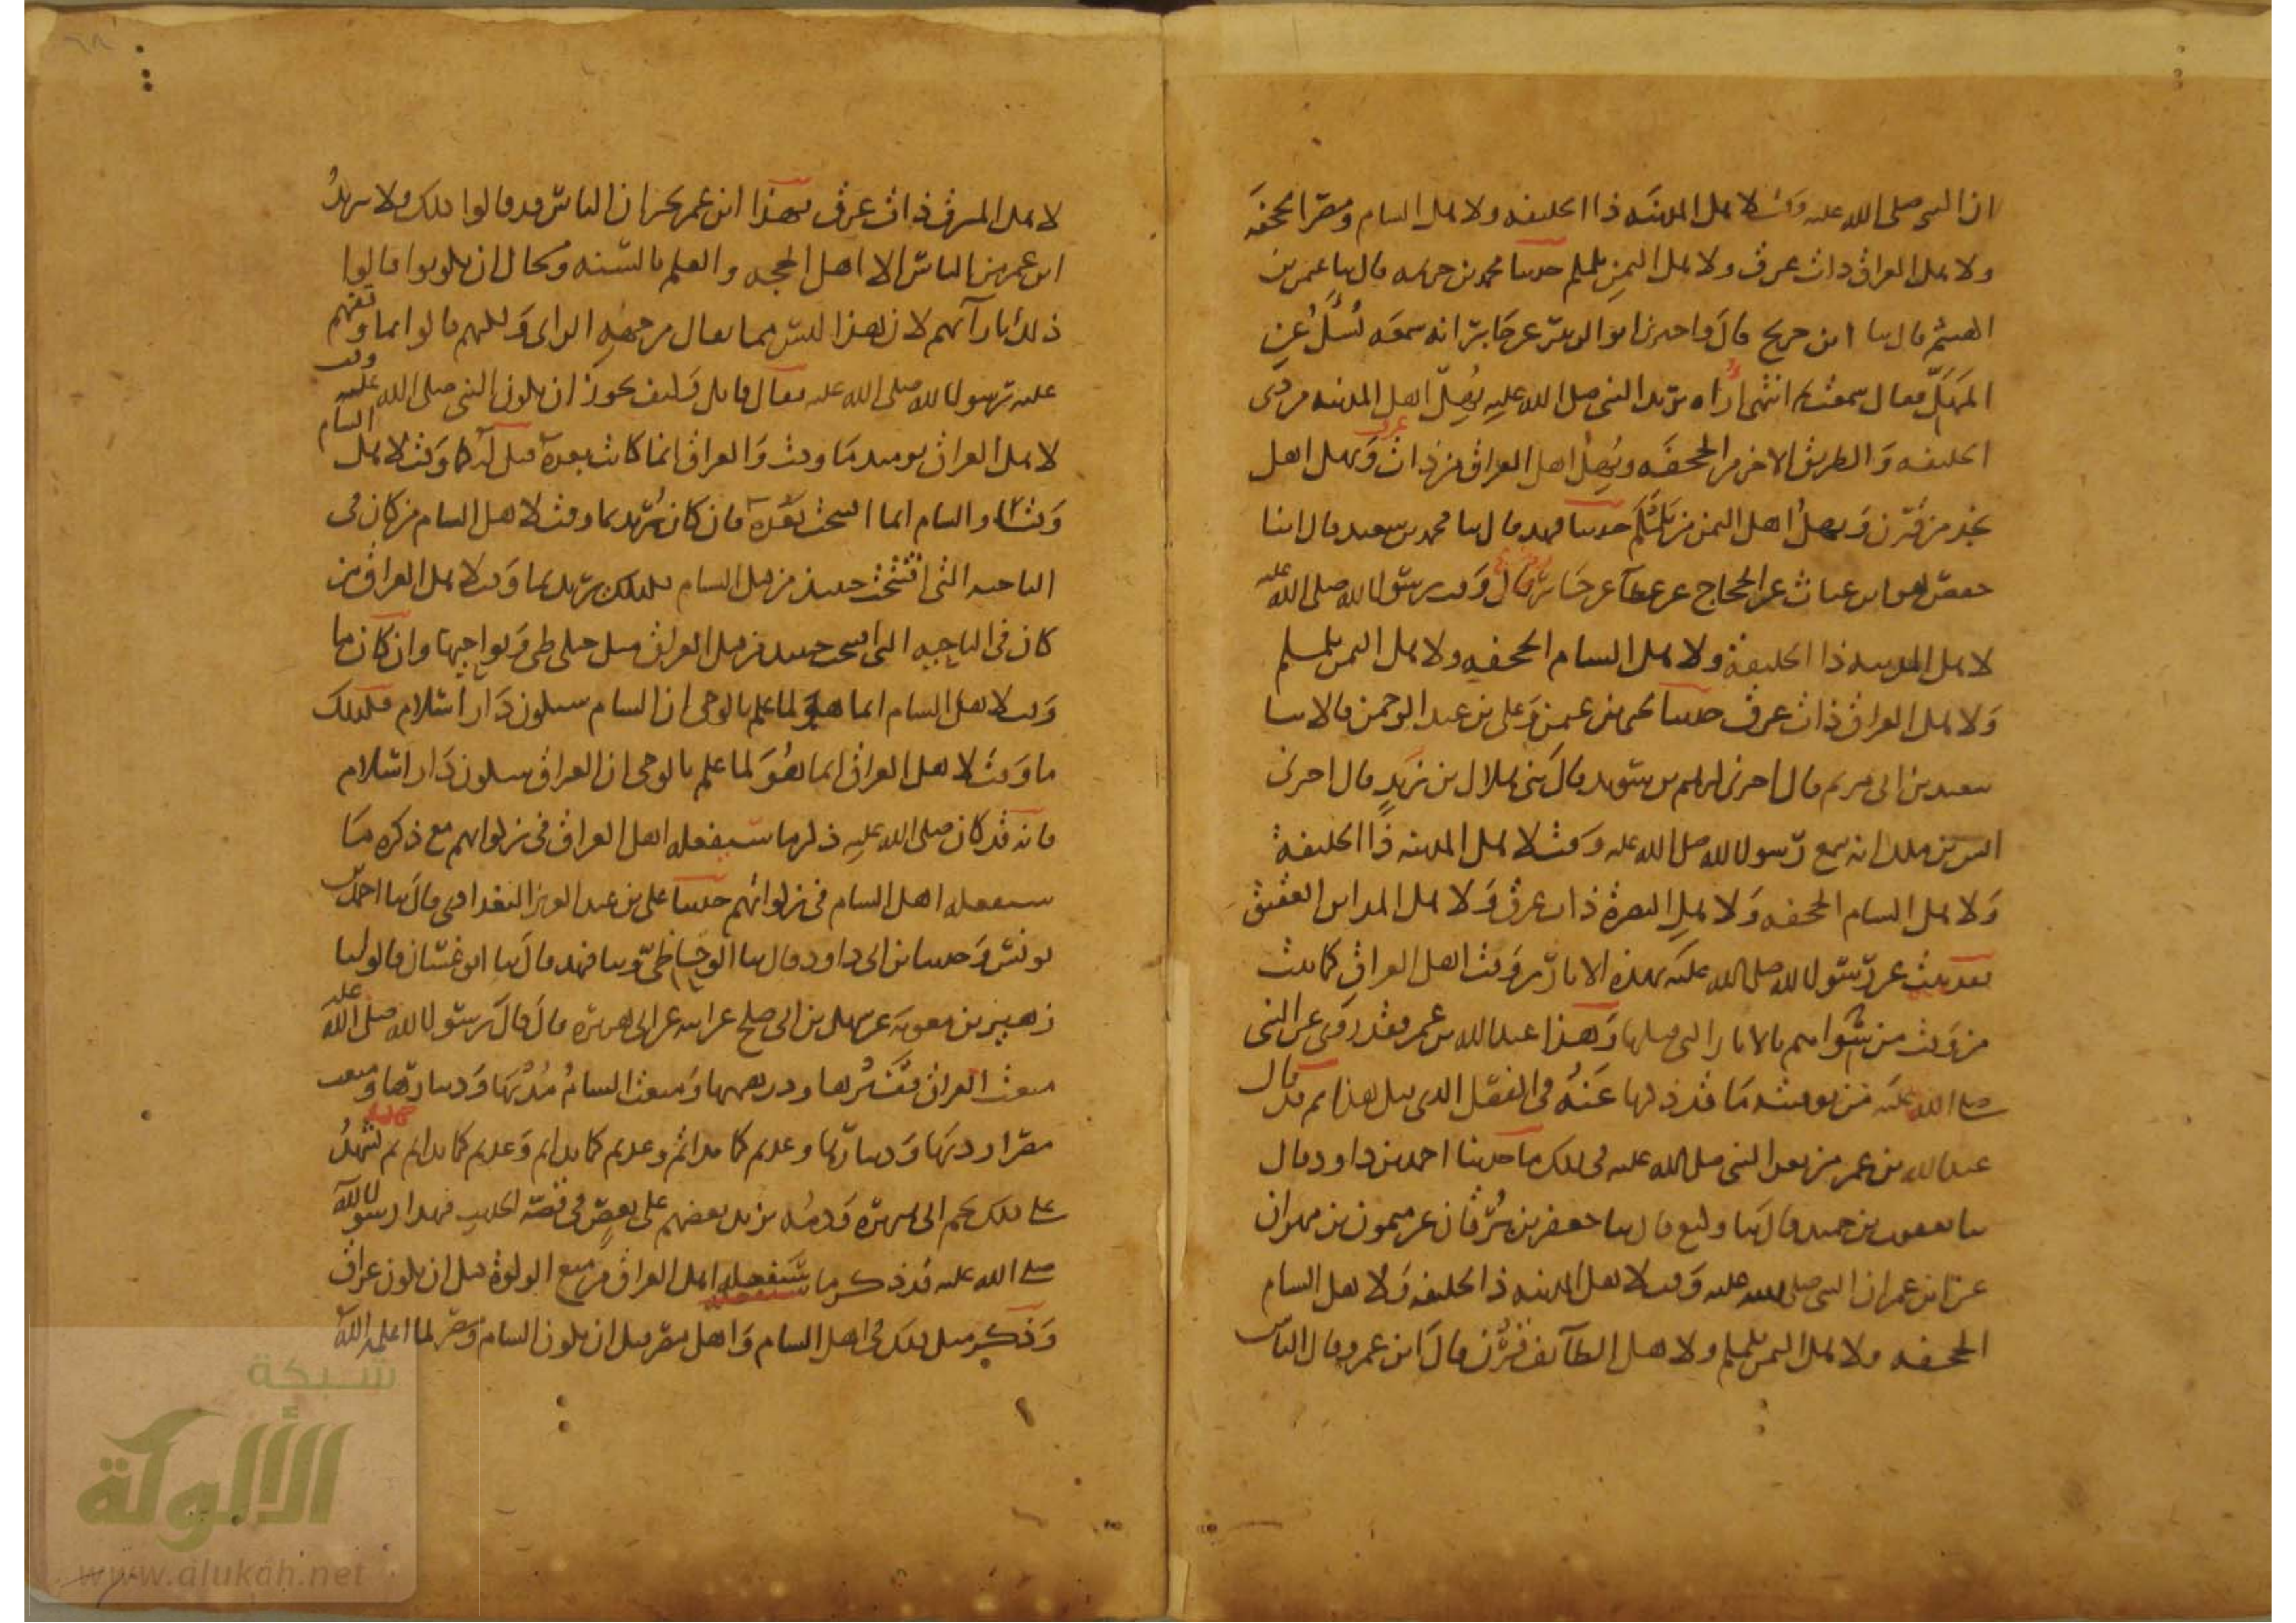 ان النبي صلى الله عليه وقت لاهل المدينه ذا الحليفه ولاهل الشام ومصر الجحفه
ولاهل العراق ذات عرق ولاهل اليمن يلملم حدثنا محمد بن خزيمه قال ثنا عثمن بن
الهيثم قال ثنا ابن جريج قال واخبرني ابو الزبير عن جابر انه سمعه يسئل عن
المهل فقال سمعت ثم انتهى اراه يريد النبي صلى الله عليه يهل اهل المدينه من ذي
الحليفه والطريق الاخر من الجحفه ويهل اهل العراق من ذات عرق ويهل اهل
نجد من قرن ويهل اهل اليمن من يلملم حدثنا فهد قال ثنا محمد بن سعيد قال انبا
حفص هو ابن غياث عن الحجاج عن عطآ عن جابر قال وقت رسول الله صلى الله عليه
لاهل المدينه ذا الحليفة ولاهل الشام الجحفه ولاهل اليمن يلملم
ولاهل العراق ذات عرق حدثنا يحيى بن عثمن وعلي بن عبد الرحمن قالا ثنا
سعيد بن ابي مريم قال اخبرني ابرهيم بن سويد قال ثني هلال بن زيد قال اخبرني
انس بن ملك انه سمع رسول الله صلى الله عليه وقت لاهل المدينه ذا الحليفة
ولاهل الشام الجحفه ولاهل البصرة ذات عرق ولاهل المداين العقيق
فقد ثبت عن رسول الله صلى الله عليه بهذه الاثار من وقت اهل العراق كما ثبت
من وقت من سواهم بالاثار التي قبلها وهذا عبد الله بن عمر فقد روى عن النبي
صلى الله عليه من توقيته ما قد ذكرناه عنه في الفصل الذي قبل هذا ثم قد قال
عبد الله بن عمر من بعد النبي صلى الله عليه في ذلك ما حدثنا احمد بن داود قال
ثنا يعقوب بن حميد قال ثنا وكيع قال ثنا جعفر بن برقان عن ميمون بن مهران
عن ابن عمر ان النبي صلى الله عليه وقت لاهل المدينه ذا الحليفه ولاهل الشام
الجحفه ولاهل اليمن يلملم ولاهل الطآئف قرن قال ابن عمر وقال الناس
لاهل المشرق ذات عرق فهذا ابن عمر يخبر ان الناس قد قالوا ذلك ولا يريد
ابن عمر من الناس الا اهل الحجه والعلم بالسنه ومحال ان يكونوا قالوا
ذلك بارآئهم لان هذا ليس مما يقال من جهه الراي ولكنهم قالوا بما وقفهم
عليه رسول الله صلى الله عليه فقال قايل وكيف يجوز ان يكون النبي صلى الله عليه وقت
لاهل العراق يوميذ ما وقت والعراق انما كانت بعده قيل له كما وقت لاهل الشام
ما وقت والشام انما افتتحت بعده فان كان يريد بما وقت لاهل الشام من كان في
الناحيه التي افتتحت حينيذ من قبل الشام فكذلك يريد بما وقت لاهل العراق من
كان في الناحيه التي افتتحت حينيذ من قبل العراق مثل جبلى طي ونواحيها وان كان ما
وقت لاهل الشام انما هو لما علم بالوحي ان الشام ستكون دار اسلام فكذلك
ما وقت لاهل العراق انما هو لما علم بالوحي ان العراق ستكون دار اسلام
فانه قد كان صلى الله عليه ذكر ما سيفعله اهل العراق في زكواتهم مع ذكره ما
سيفعله اهل الشام في زكواتهم حدثنا علي بن عبد العزيز البغدادي قال ثنا احمد بن
يونس وحدثنا ابن ابي داود قال ثنا الوحاظي وثنا فهد قال ثنا ابو غسان قالوا ثنا
زهير بن معويه عن سهيل بن ابي صلح عن ابيه عن ابي هريرة قال قال رسول الله صلى الله عليه
منعت العراق قفيزها ودرهمها ومنعت الشام مديها ودينارها ومنعت
مصر اردبها ودينارها وعدتم كما بدأتم وعدتم كما بدأتم وعدتم كما بدأتم ثم شهد
على ذلك لحم ابي هريرة ودمه يزيد بعضهم على بعض في قصة الحديث فهذا رسول الله
صلى الله عليه قد ذكر ما سيفعله اهل العراق من منع الزكوة قبل ان يكون عراق
وذكر مثل ذلك في اهل الشام واهل مصر قبل ان يكون الشام ومصر لما اعلمه الله
شبكة
الألوكة
www.alukah.net